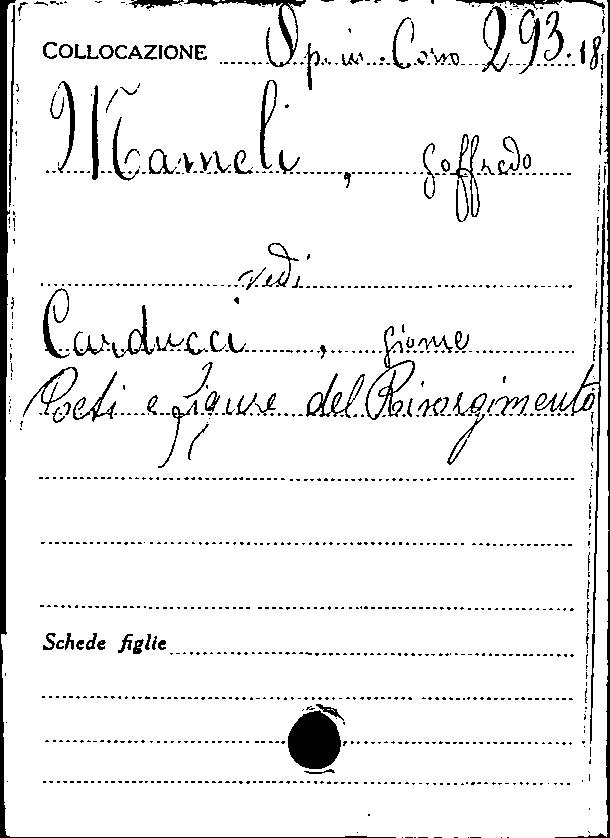 COLLOCAZIONE Op. in. Corso 293.18
Mameli, Goffredo
vedi
Carducci, Giosue
Poeti e Figure del Risorgimento
Schede figlie